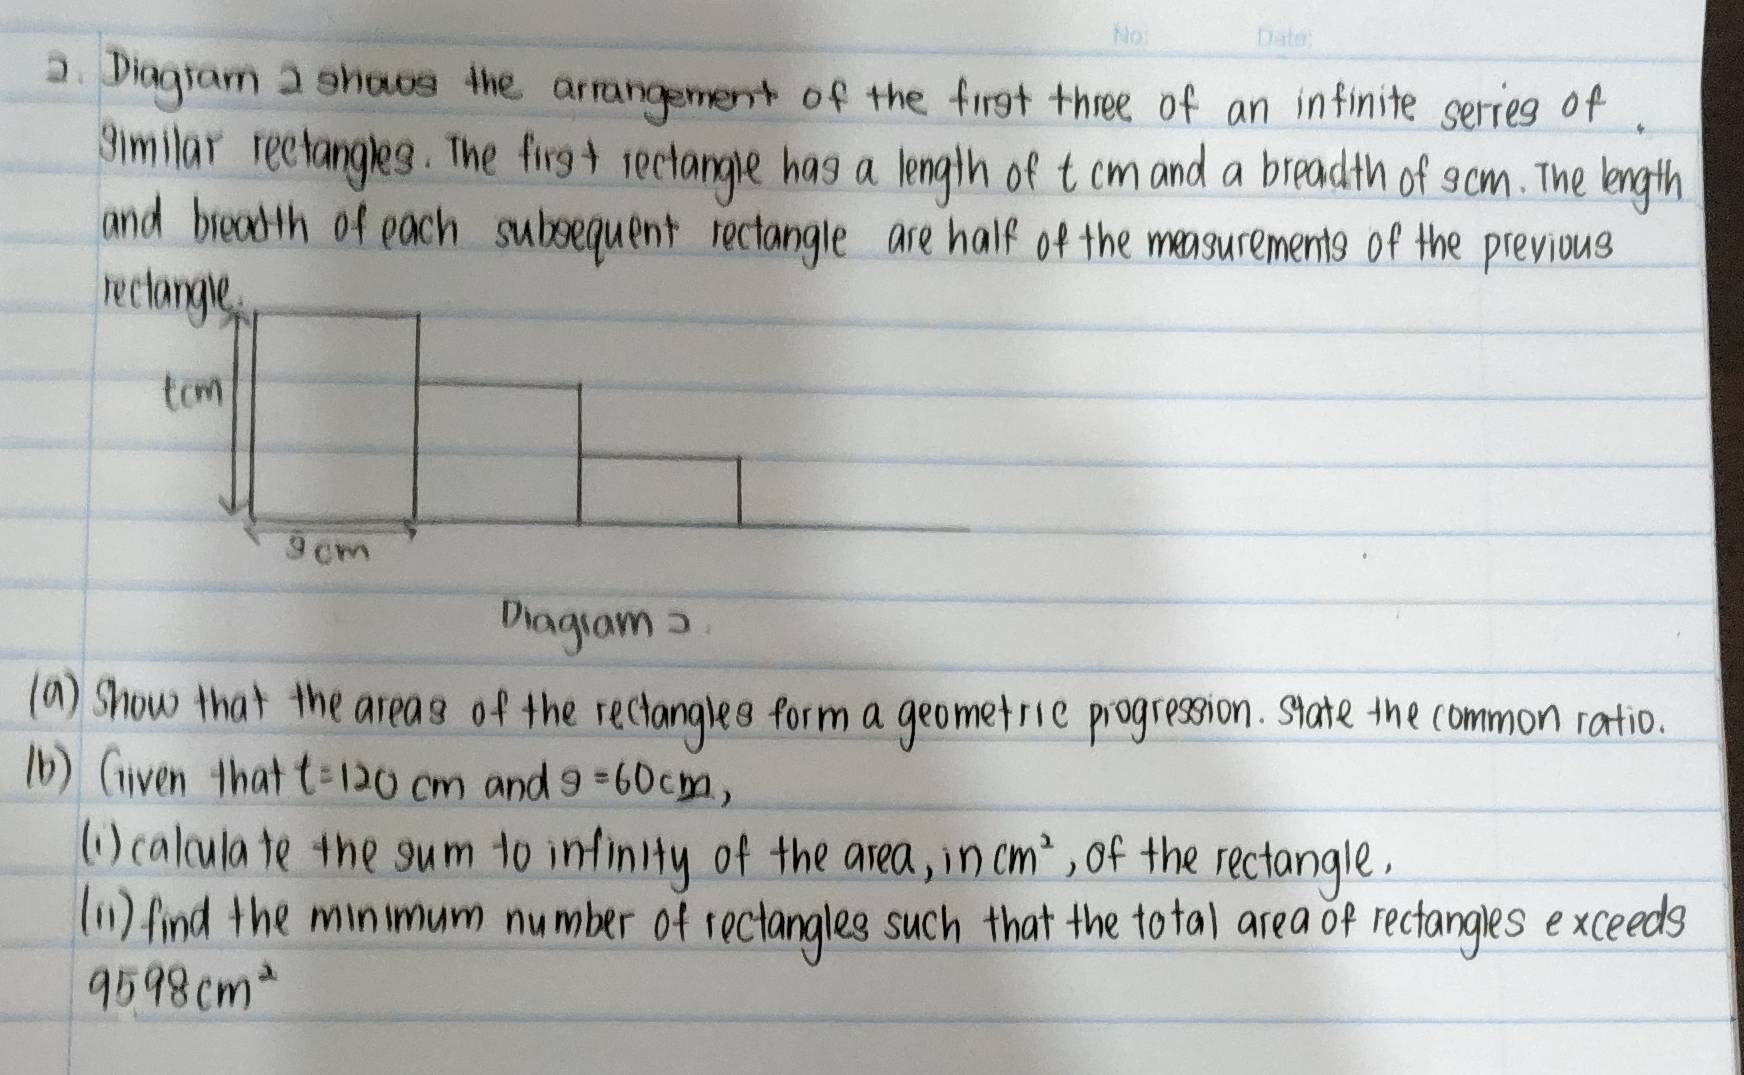 No: Date:
2. Diagram 2 shows the arrangement of the first three of an infinite series of
similar rectangles. The first rectangle has a length of t cm and a breadth of s cm. The length
and breadth of each subsequent rectangle are half of the measurements of the previous
rectangle.
t cm
s cm
Diagram 2.
(a) Show that the areas of the rectangles form a geometric progression. State the common ratio.
(b) Given that t = 120 cm and s = 60 cm,
(i) calculate the sum to infinity of the area, in cm², of the rectangle.
(ii) find the minimum number of rectangles such that the total area of rectangles exceeds
9598 cm²